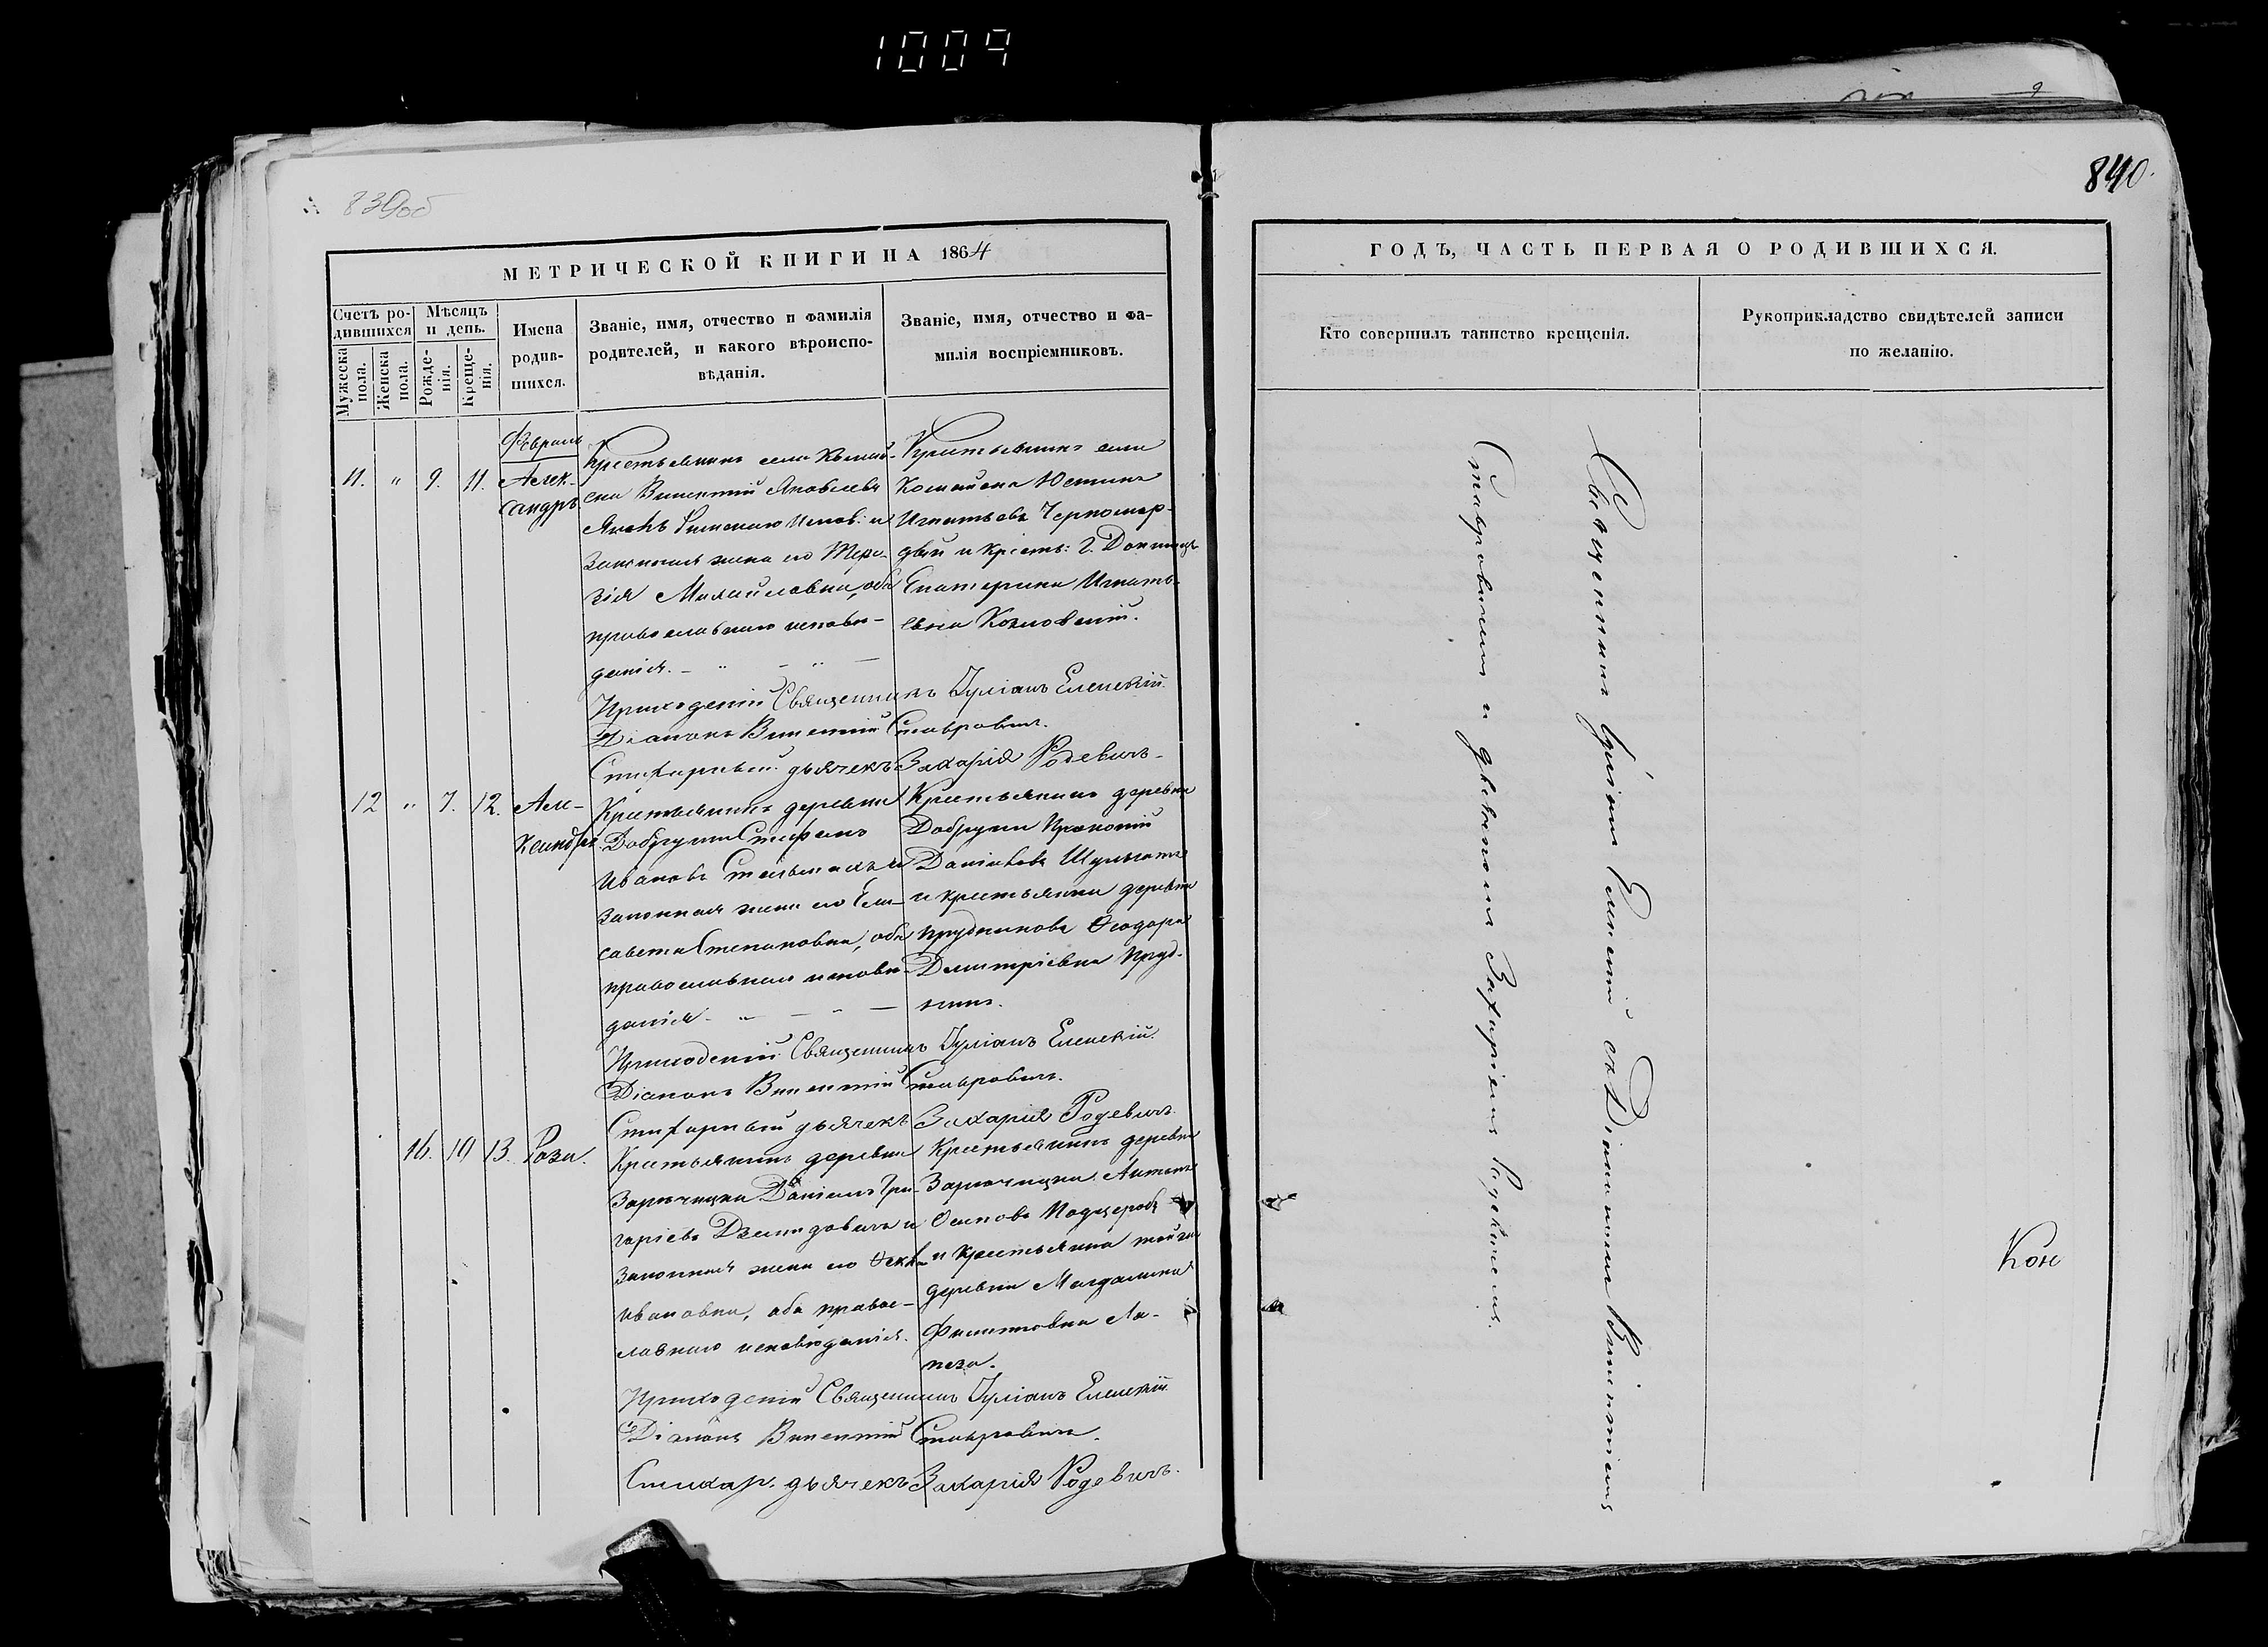 1009
839об
840.
МЕТРИЧЕСКОЙ КНИГИ НА 1864
ГОДЪ, ЧАСТЬ ПЕРВАЯ О РОДИВШИХСЯ.
Счетъ ро-
дившихся
Мужеска пола.
Женска пола.
Мѣсяцъ
и день.
Рожде-
нія.
Креще-
нія.
Имена
родив-
шихся.
Званіе, имя, отчество и фамилія
родителей, и какого вѣроиспо-
вѣданія.
Званіе, имя, отчество и фа-
милія воспріемниковъ.
Кто совершилъ таинство крещенія.
Рукоприкладство свидѣтелей записи
по желанію.
Февраль
11. " 9. 11. Алек-
сандръ
Крестьянинъ села
Викентій Яковлевъ
и
законная жена его Тере-
зія Михайловна, оба
православнаго исповѣ-
данія. - " - " -
Крестьянинъ села
Юстинъ
Игнатьевъ Черномор-
и крест: г. Докшицъ
Екатерина Игнать-
ева Козловскій.
Приходскій Священникъ Іуліанъ Еленскій.
Діаконъ Викентій Ставровичъ.
Стихарный дьячекъ Захарія Родевичъ.
12 " 7. 12. Але-
ксандръ
Крестьянинъ деревни
Добруни Стефанъ
Ивановъ Стельмахъ и
законная жена его Ели-
савета Степановна, оба
православнаго исповѣ-
данія. - " - " -
Крестьянинъ деревни
Добруни Прокопій
Даніиловъ
и крестьянка деревни
Прудниковъ Ѳеодора
Димитріевна Пруд-
никъ.
Приходскій Священникъ Іуліанъ Еленскій.
Діаконъ Викентій Ставровичъ.
Стихарный дьячекъ Захарія Родевичъ.
16. 10 13. Роза.
Крестьянинъ деревни
Заречицка Даніилъ Гри-
горіевъ и
законная жена его Ѳекла
Ивановна, оба правос-
лавнаго исповѣданія.
Крестьянинъ деревни
Заречицка Антонъ
Осиповъ
и крестьянка той же
деревни Магдалина
Филиповна Ла-
пеза.
Приходскій Священникъ Іуліанъ Еленскій
Діаконъ Викентій Ставровичъ.
Стихар. дьячекъ Захарія Родевичъ.
Священникъ Іуліанъ Еленскій съ Діакономъ Викентіемъ
Ставровичемъ и дьячкомъ Захаріемъ Родевичемъ.
Кон